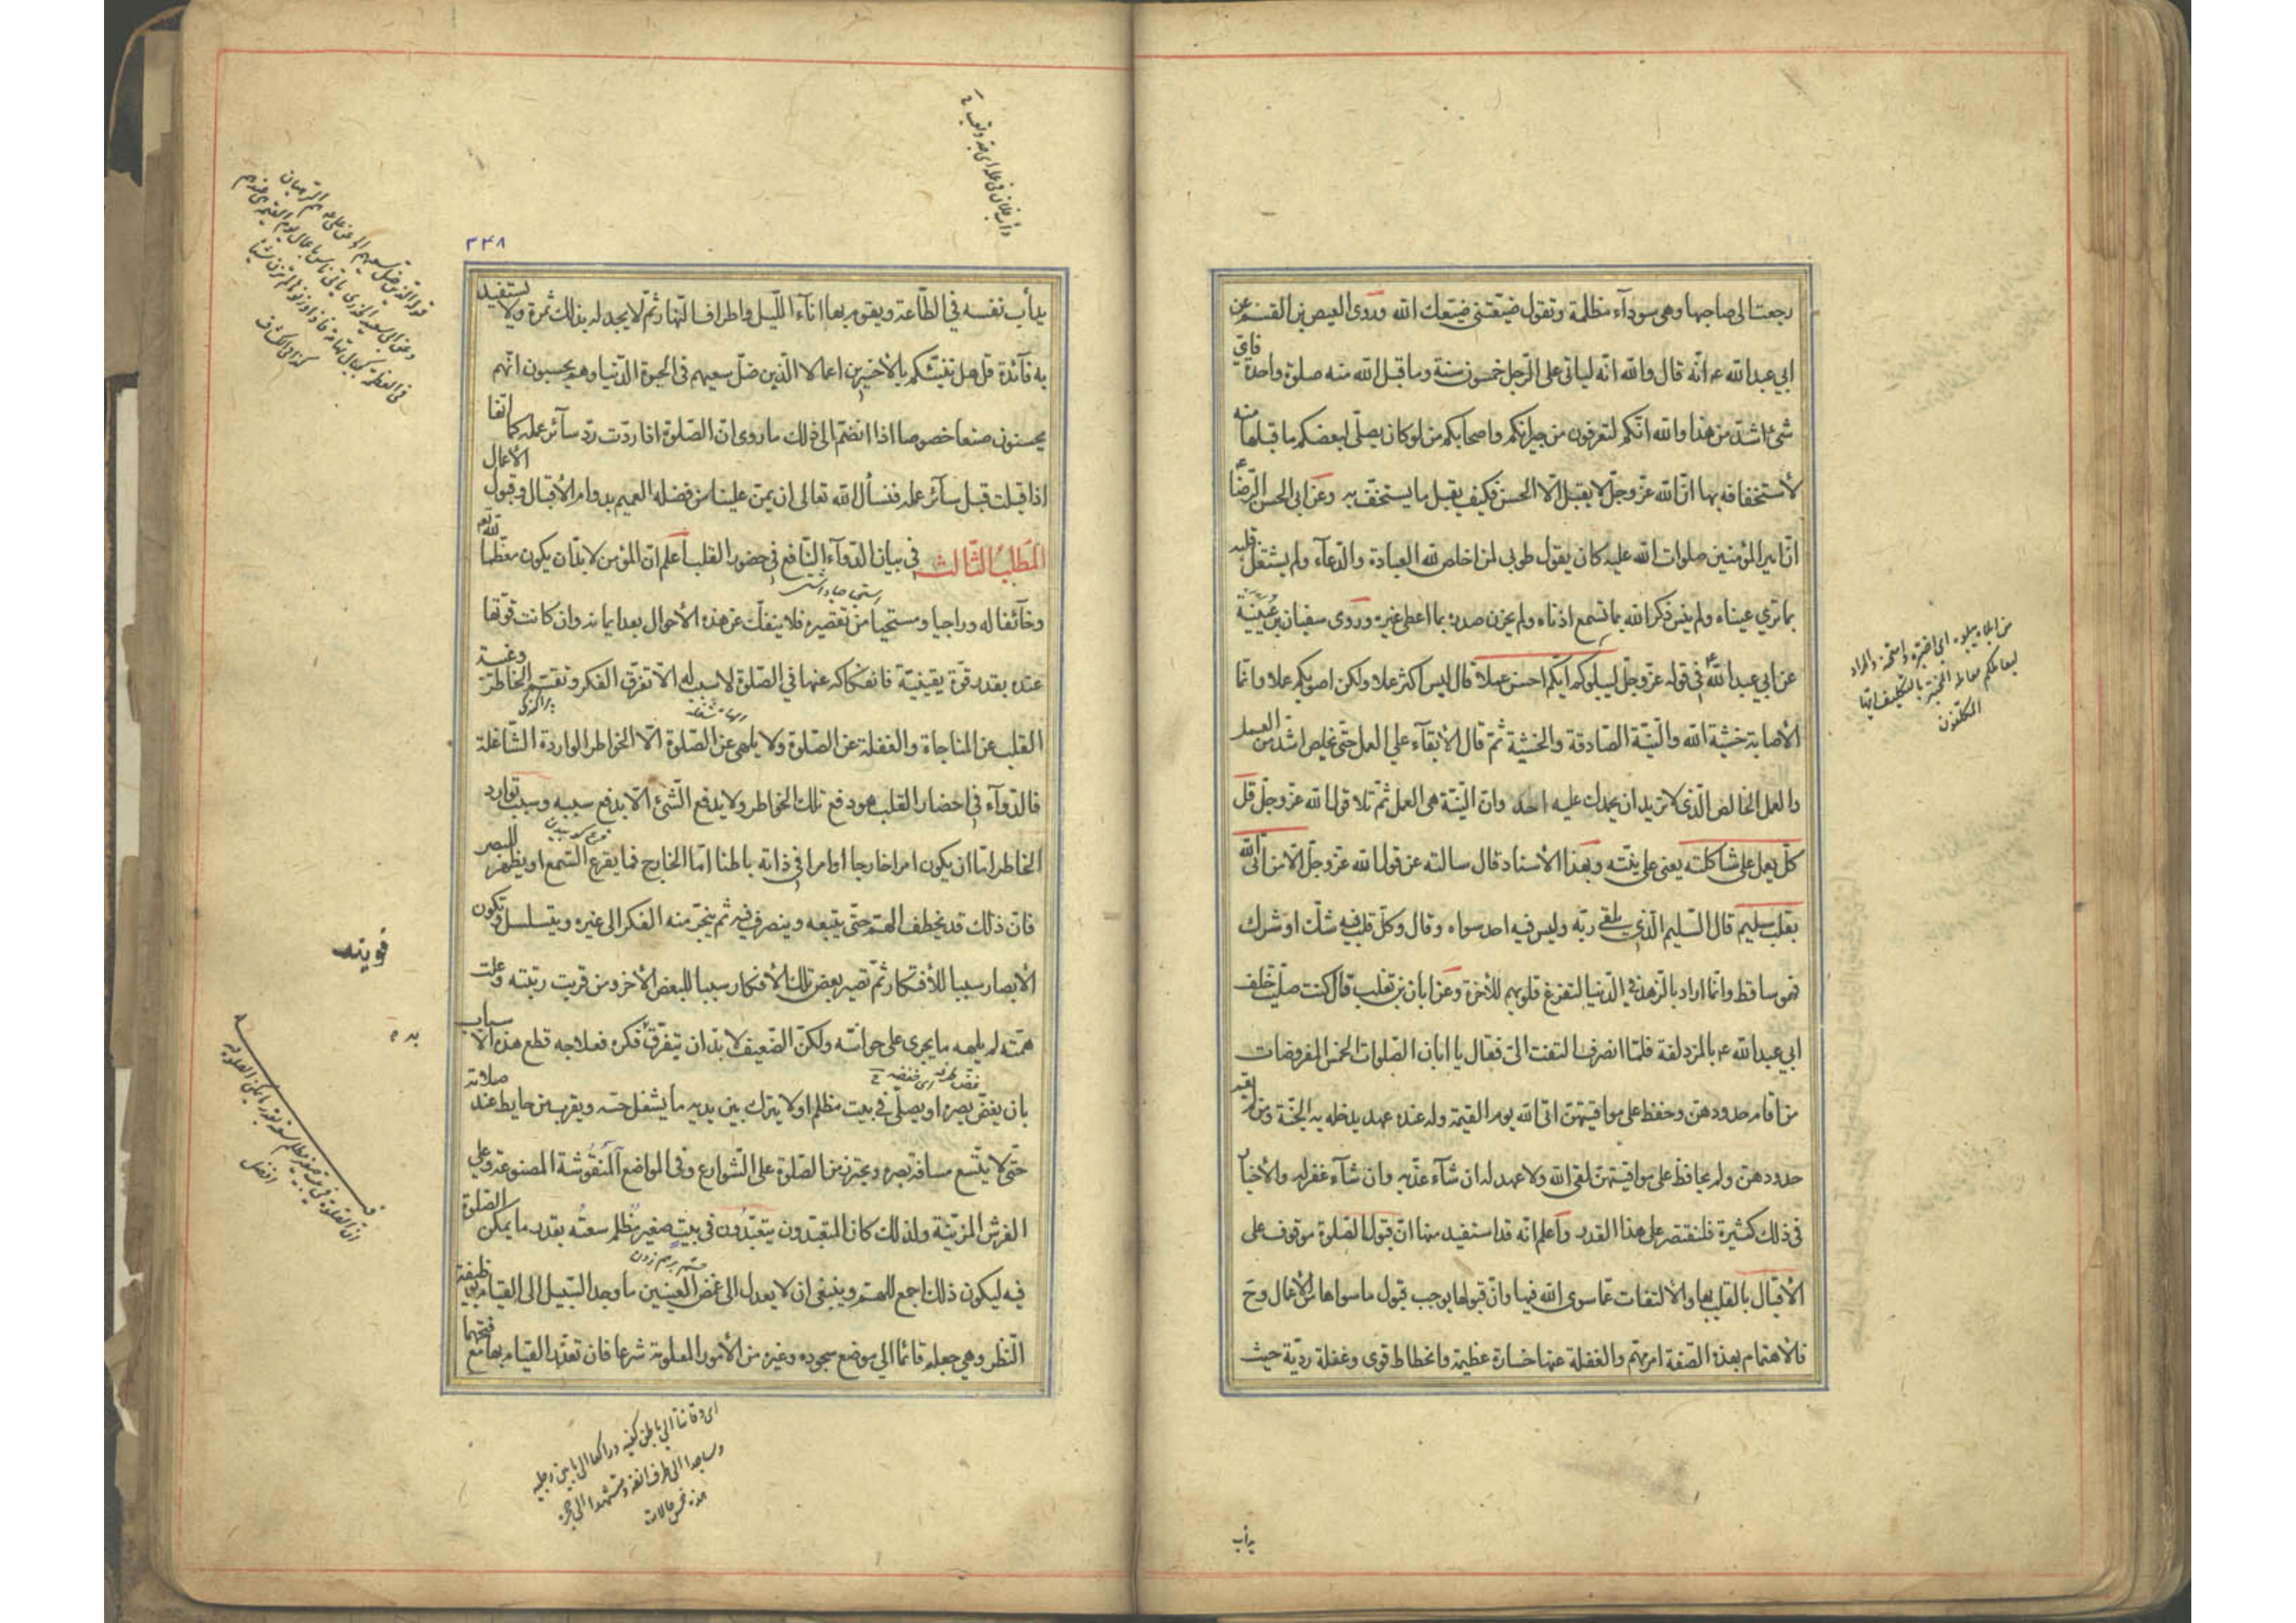 رجعت الى صاحبها وهى سودآء مظلمة وتقول ضيّعتنى ضيّعك الله وروى العيص بن القسم عن
ابي عبد الله ع انّه قال والله انّه لياتى على الرّجل خمسون سنة وما قبل الله منه صلوة واحدة فاىّ
شئ اشدّ من هذا والله انّكم لتعرفون من جيرانكم واصحابكم من لو كان يصلّى لبعضكم ما قبلها منه
لأستخفافه بها انّ الله عزّ وجلّ لا يقبل الّا الحسن فكيف يقبل ما يستخفّ به وعن ابى الحسن الرّضا ع
انّ امير المؤمنين صلوات الله عليه كان يقول طوبى لمن اخلص لله العبادة والدّعآء ولم يشتغل قلبه
بما تري عيناه ولم ينس ذكر الله بما تسمع اذناه ولم يحزن صدره بما اعطى غيره وروى سفيان بن عُيَيْنَة
عن ابي عبد الله ع فى قوله عزّ وجلّ ليبلوكم ايّكم احسن عملا قال ليس اكثر عملا ولكن اصوبكم عملا وانّما
الأصابة خشية الله والنّيّة الصّادقة والخشية ثمّ قال الأبقآء على العمل حتّى يخلص اشدّ من العمل
والعمل الخالص الّذى لا تريد ان يحمدك عليه احد وانّ النّيّة هى العمل ثمّ تلا قول الله عزّ وجلّ قل
كلّ يعمل على شاكلته يعنى على نيّته وبهذا الأسناد قال سالته عن قول الله عزّ وجلّ الّا من اتى الله
بقلب سليم قال السّليم الّذى يلقى ربّه وليس فيه احد سواه وقال وكلّ قلب فيه شكّ او شرك
فهو ساقط وانّما اراد بالزّهد فى الدّنيا لتفرغ قلوبهم للأخرة وعن ابان بن تغلب قال كنت صلّيت خلف
ابي عبد الله ع بالمزدلفة فلمّا انصرف التفت الىّ فقال يا ابان الصّلوات الخمس المفروضات
من اقام حدودهنّ وحفظ على مواقيتهنّ اتى الله يوم القيمة وله عنده عهد يدخله به الجنّة ومن لم يقم
حدودهنّ ولم يحافظ على مواقيتهنّ لقى الله ولا عهد له ان شآء عذّبه وان شآء غفر له والأخبار
فى ذلك كثيرة فلنقتصر على هذا القدر واعلم انّه قد استفيد منها انّ قبول الصّلوة موقوف على
الأقبال بالقلب بها والألتفات عمّا سوى الله فيها وانّ قبولها يوجب قبول ما سواها من الأعمال وح
فالأهتمام بهذه الصّفة امر مهمّ والغفلة عنها خسارة عظيمة وانحطاط قوى وغفلة رديّة حيث
يداب
٣٤٨
يدأب نفسه في الطّاعة ويقوم بها اناآء اللّيل واطراف النّهار ثمّ لا يجد له بذلك ثمرة ولا يستفيد
به فآئدة قل هل ننبّئكم بالأخسرين اعمالا الّذين ضلّ سعيهم فى الحيوة الدّنيا وهم يحسبون انّهم
يحسنون صنعا خصوصا اذا انضمّ الى ذلك ما روى انّ الصّلوة اذا ردّت ردّ سآئر عمله كما انّها
اذا قبلت قبل سآئر عمله فنسأل الله تعالى ان يمنّ علينا من فضله العميم بدوام الأقبال وقبول الأعمال
المطلب الثّالث في بيان الدّوآء النّافع فى حضور القلب اعلم انّ المؤمن لا بدّ ان يكون معظّما لله تعم
وخآئفا له وراجيا ومستحيا من تقصيره فلا ينفكّ عن هذه الأحوال بعد ايمانه وان كانت قوّتها
عنده بقدر قوّة يقينيّة فانفكاكه عنها فى الصّلوة لا سبب له الّا تفرّق الفكر وتقسّم الخاطر وغيبة
القلب عن المناجاة والغفلة عن الصّلوة ولا يلهى عن الصّلوة الّا الخواطر الواردة الشّاغلة
فالدّوآء فى احضار القلب هو دفع تلك الخواطر ولا يدفع الشّئ الّا بدفع سببه وسبب توارد
الخاطر امّا ان يكون امرا خارجا او امرا فى ذاته باطنا امّا الخارج فما يقرع السّمع او يظهر للبصر
فانّ ذلك قد يخطف الهمّ حتّى يتبعه وينصرف فيه ثم ينجرّ منه الفكر الى غيره ويتسلسل وتكون
الأبصار سببا للأفتكار ثمّ تصير بعض تلك الأفكار سببا للبعض الأخر ومن قويت رتبته وعلت
همّته لم يلهه ما يجرى على حواسّه ولكنّ الضّعيف لا بدّ ان يتفرّق فكره فعلاجه قطع هذه الأسباب
بان يغضّ بصره او يصلّى فى بيت مظلم او لا يترك بين يديه ما يشغل حسّه ويقرب من حايط عند صلاته
حتّى لا يتّسع مسافة بصره ويحترز من الصّلوة على الشّوارع وفى المواضع المنقوشة المصنوعة وعلى
الفرش المزيّنة ولذلك كان المتعبّدون يتعبّدون فى بيت صغير مظلم سعته بقدر ما يمكن الصّلوة
فيه ليكون ذلك اجمع للهمّ وينبغى ان لا يعدل الى غضّ العينين ما وجد السّبيل الى القيام بوظيفة
النّظر وهى جعله قائما الى موضع سجوده وغيره من الأمور المعلومة شرعا فان تعذّر القيام بها مع فتحهما
قويته